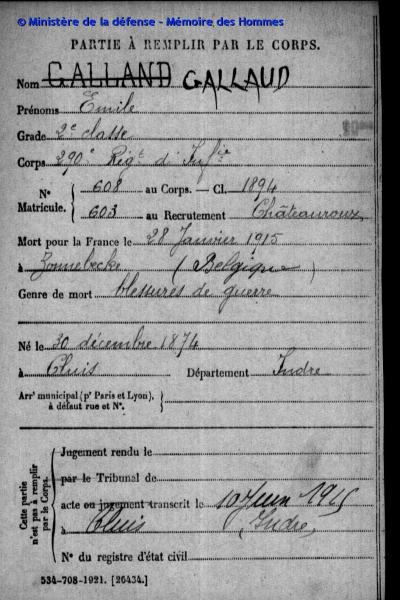 © Ministère de la défense - Mémoire des Hommes
PARTIE À REMPLIR PAR LE CORPS.
Nom GALLAND GALLAUD
Prénoms Emile
Grade 2e classe
Corps 290e Régt d'Infie
N° Matricule. { 608 au Corps. — Cl. 1894
603 au Recrutement Châteauroux
Mort pour la France le 28 Janvier 1915
à Zonnebecke (Belgique)
Genre de mort blessures de guerre
Né le 30 décembre 1874
à Cluis Département Indre
Arrt municipal (pr Paris et Lyon), à défaut rue et N°. }
Cette partie n'est pas à remplir par le Corps.
Jugement rendu le
par le Tribunal de
acte ou jugement transcrit le 10 Juin 1915
à Cluis (Indre)
N° du registre d'état civil
534-708-1921. [26434.]